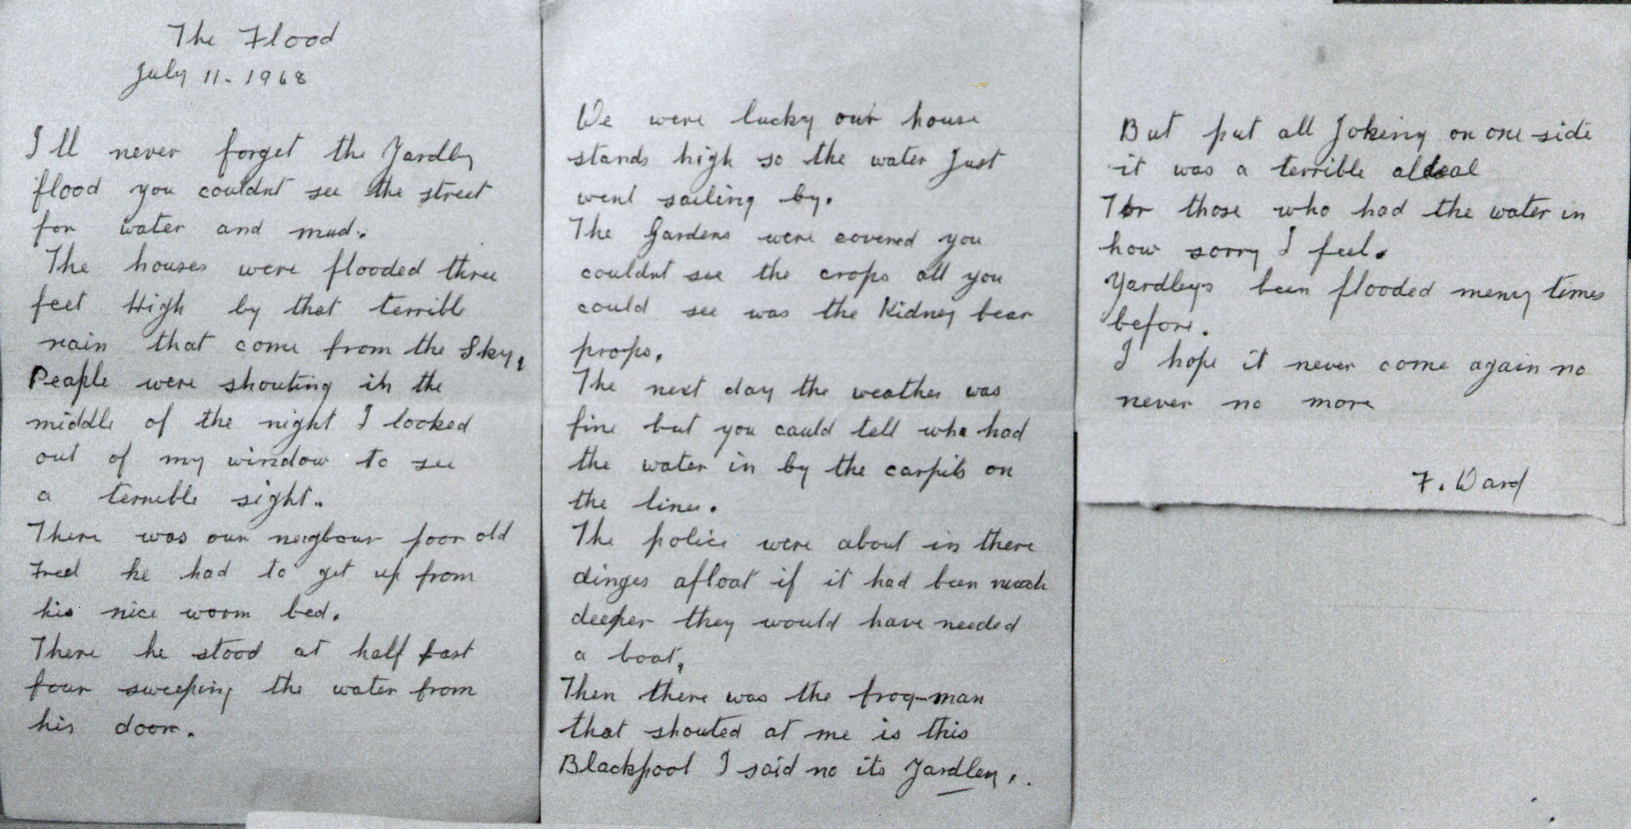 The Flood
July 11. 1968
I ll never forget the Yardley
flood you couldnt see the street
for water and mud.
The houses were flooded three
feet High by that terrible
rain that come from the Sky,
People were shouting in the
middle of the night I looked
out of my window to see
a terrible sight.
There was our neigbour poor old
Fred he had to get up from
his nice worm bed.
There he stood at half past
four sweeping the water from
his door.
We were lucky our house
stands high so the water Just
went sailing by.
The Gardens were covered you
couldnt see the crops all you
could see was the Kidney bean
props,
The next day the weather was
fine but you could tell who had
the water in by the carpits on
the lines.
The police were about in there
dinges afloat if it had been much
deeper they would have needed
a boat,
Then there was the frog-man
that shouted at me is this
Blackpool I said no its Yardley,.
But put all Jokeing on one side
it was a terrible
For those who had the water in
how sorry I feel.
Yardleys been flooded meny times
before.
I hope it never come again no
never no more
F. Ward